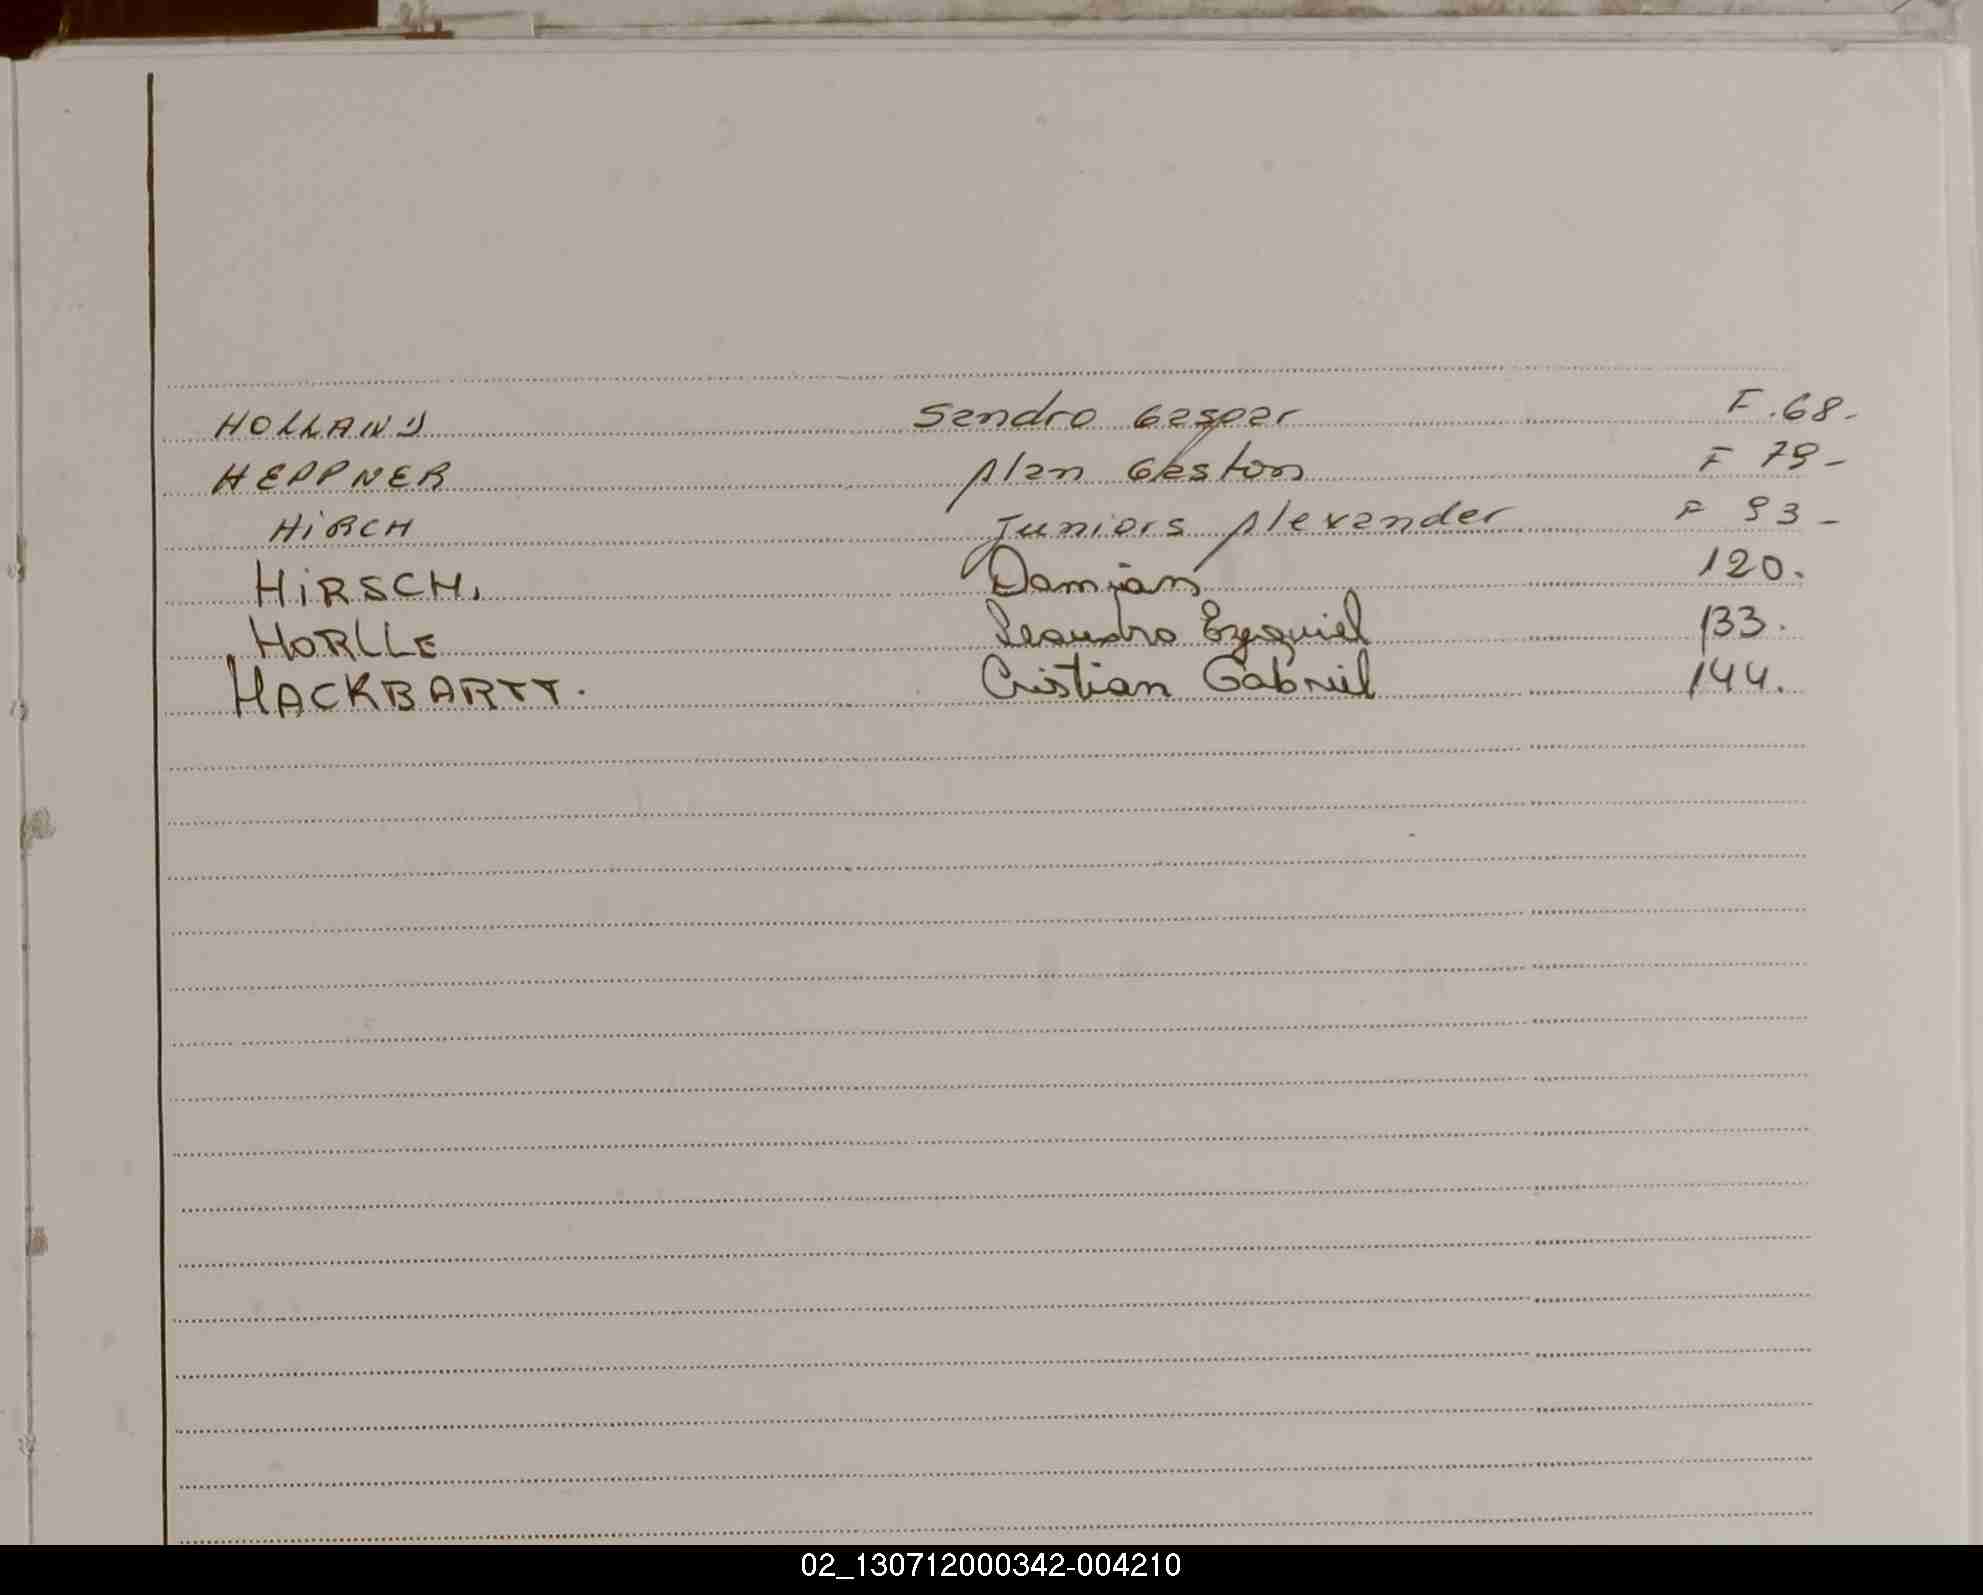 HOLLAND Sandro Gaspar F.68-
HEPPNER Alan Gaston F 79-
HiRCH Juniors Alexander F 93-
HiRSCH. Damian 120.
HORLLE Leandro Ezequiel 133.
HACKBARTT. Cristian Gabriel 144.
02_130712000342-004210